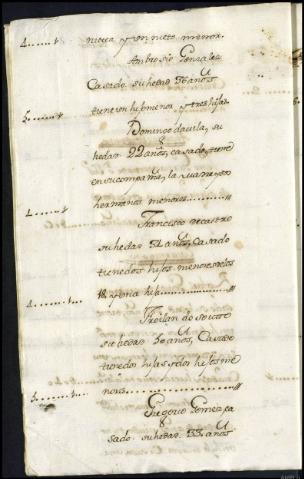 4......+ nueva y un nieto menor.
Ambrosio Gonzales
Casado suhedad 56 años
tiene un hijo menor y tres hijas.
5......+
Domingo davila, su
hedad 22 años, casado, tiene
en su compañia, la suegra y dos
hermanos menores
1......+
Francisco de castro
suhedad 51 años, Casado
tiene dos hijos menores de los
18 y una hija..............//
4......+
Froilan do
suhedad 50 años, Casado
tiene dos hijas y dos hijos me
nores..................//
5......
Gregorio Gomez ca
sado suhedad 33 años